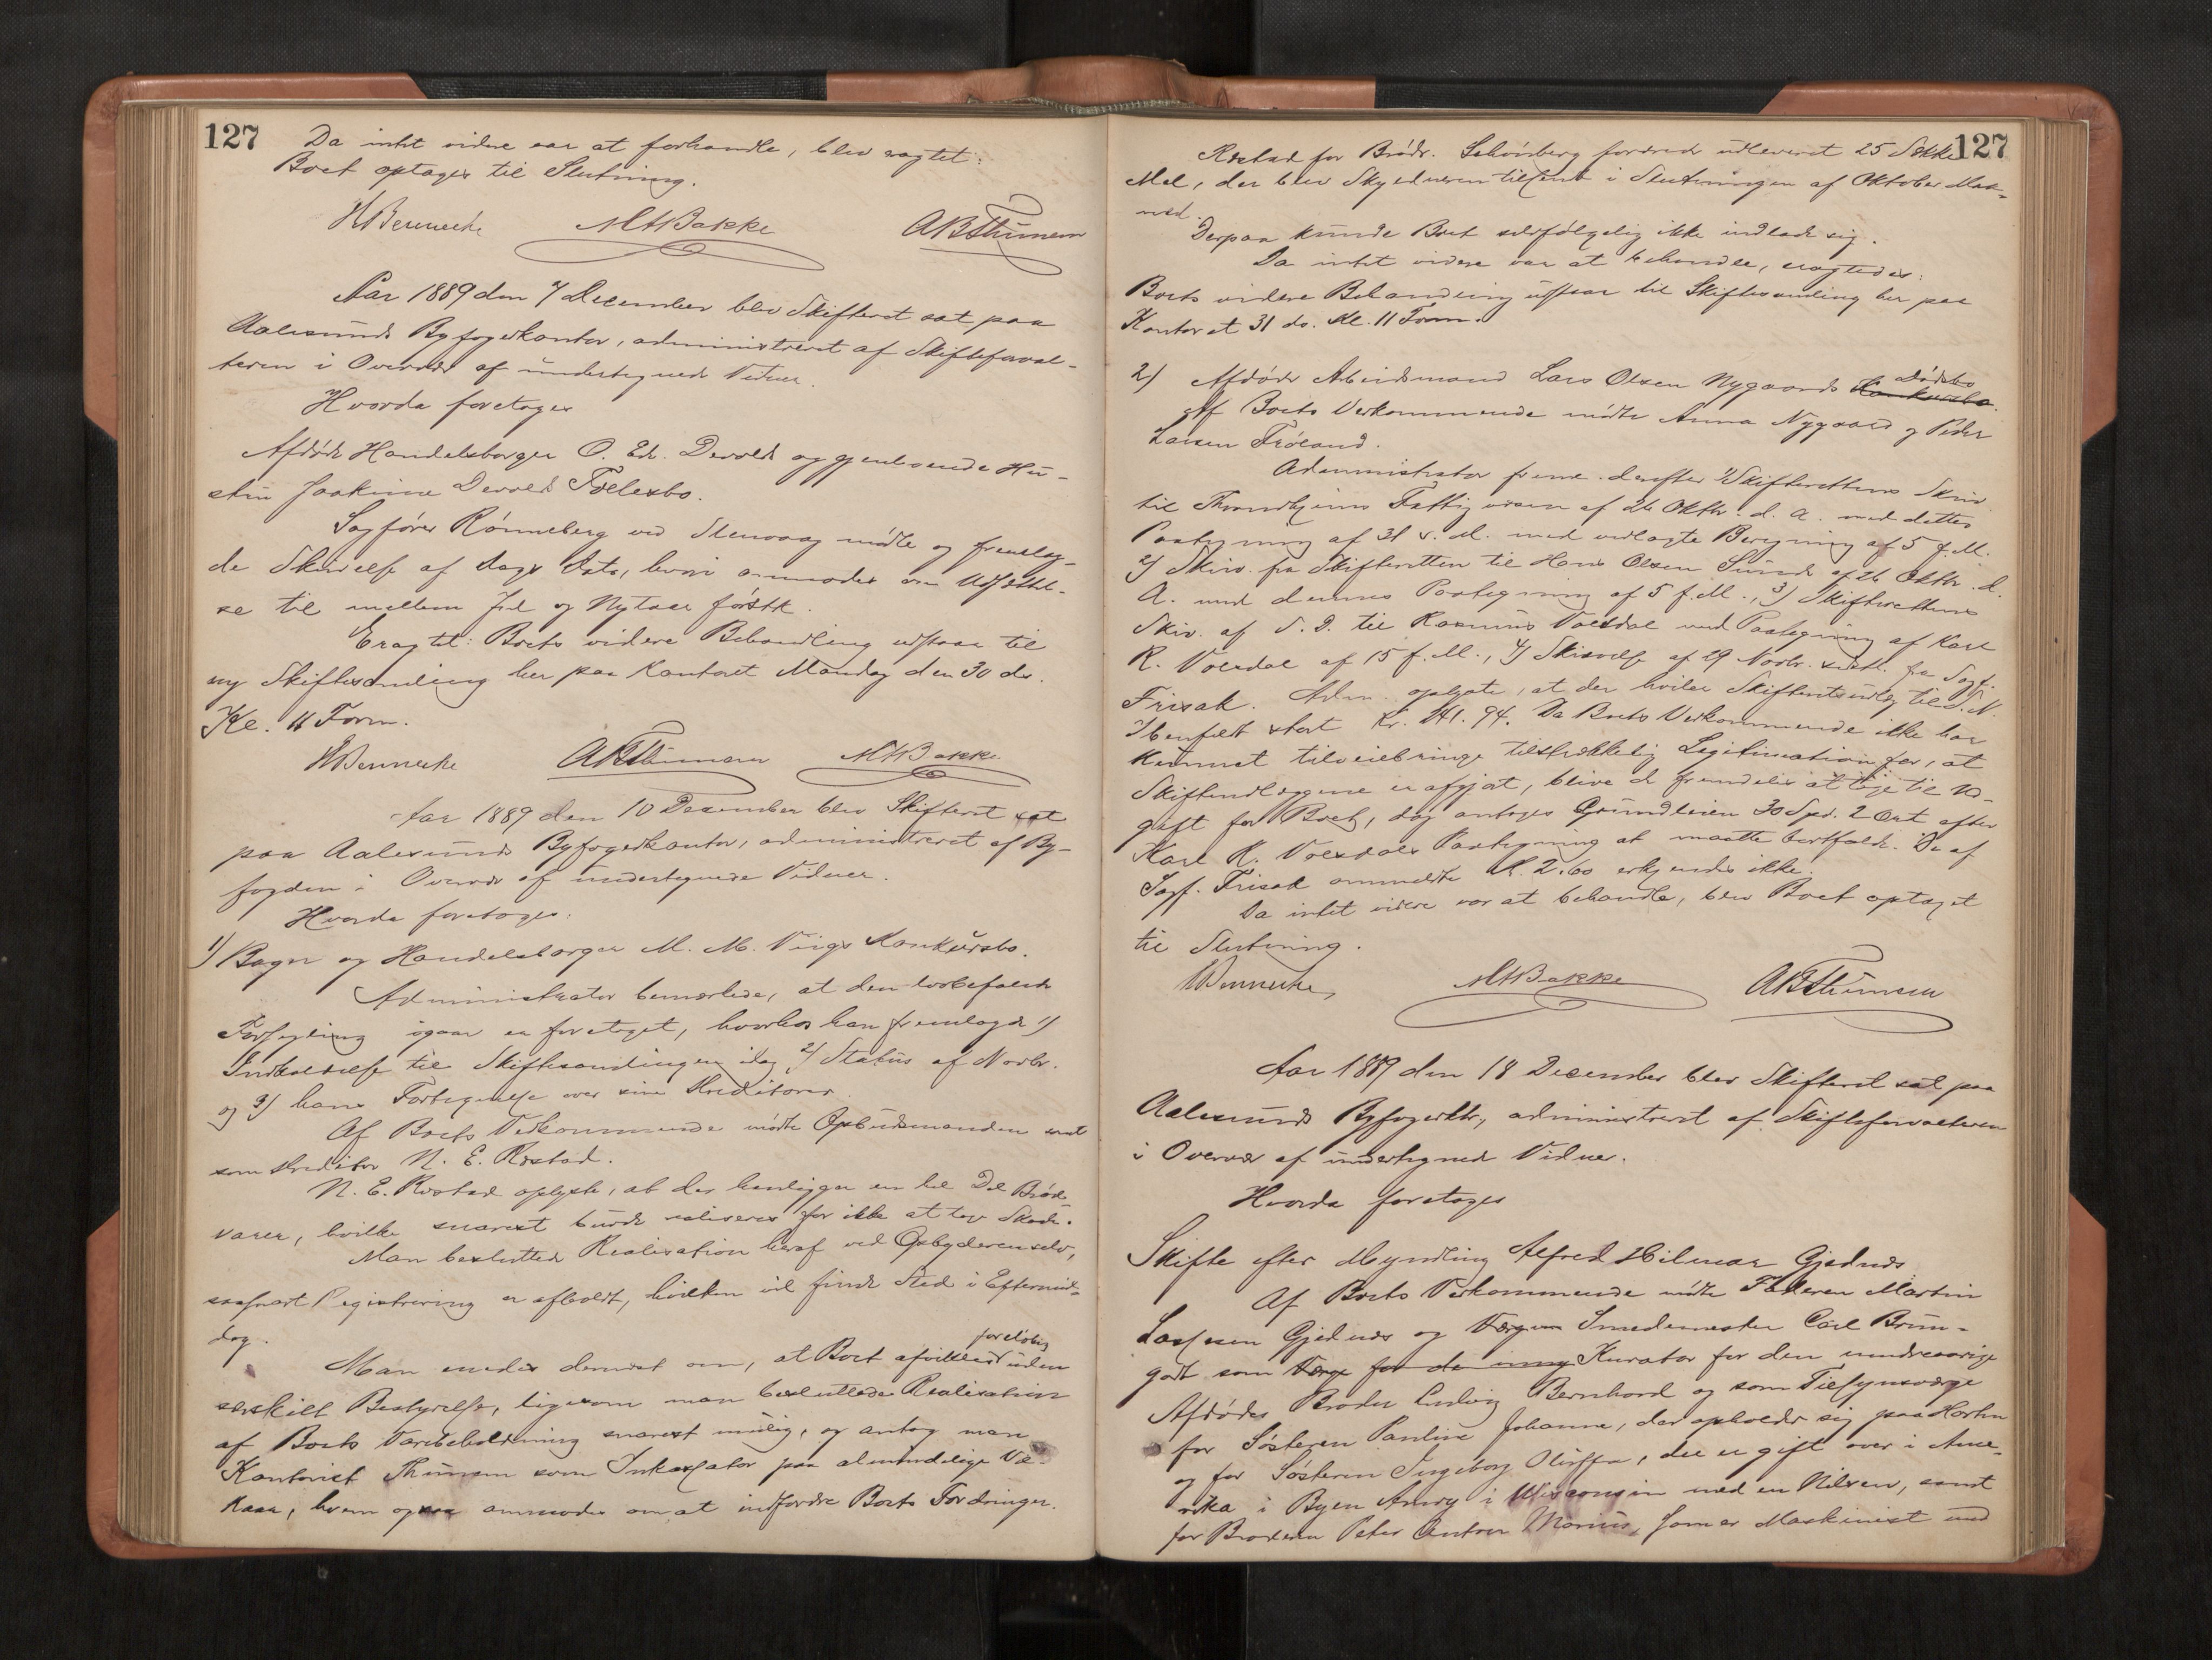 127
Da intet videre var at forhandle, blev eragtet:
Boet optages til Slutning.
HBennecke MHBakke ABThunem
Aar 1889 den 7 December blev Skifteret sat paa
Aalesunds Byfogedkontor, administreret af Skifteforval-
teren i Overvær af undertegnede Vidner.
Hvorda foretoges
Afdøde Handelsborger O. Edv. Devold og gjenlevende Hu-
stru Joakime Devold Fællesbo.
Sagfører Rønneberg ved Stenvaag mødte og fremlag-
de Skrivelse af Dags Dato, hvori anmodes om Udsættel-
se til mellem Jul og Nytaar førstk.
Eragtet: Boets videre Behandling udstaar til
ny Skiftesamling her paa Kontoret Mandag den 30 ds.
Kl. 11 Form.
HBennecke ABThunem MHBakke
Aar 1889 den 10 December blev Skifteret sat
paa Aalesunds Byfogedkontor, administreret af By-
fogden i Overvær af undertegnede Vidner.
Hvorda foretoges:
1) Bager og Handelsborger M. M. Viigs Konkursbo.
Administrator bemærkede, at den lovbefalede
Forsegling igaar er foretaget, hvorhos han fremlagde 1)
Indkaldelse til Skiftesamlingen idag 2) Status af Novbr.
og 3) hans Fortegnelse over sine Kreditorer.
Af Boets Vedkommende mødte Opbudsmanden samt
som Kreditor N. E. Røstad.
N. E. Røstad oplyste, at der henligger en hel Del Brød-
varer, hvilke snarest burde realiseres for ikke at tage Skade.
Man besluttede Realisation heraf ved Opbyderen selv,
saasnart Registrering er afholdt, hvilken vil finde Sted i Eftermid-
dag.
foreløbig
Man enedes dernæst om, at Boet afvikles uden
særskilt Bestyrelse, ligesom man besluttede Realisation
af Boets Varebeholdning snarest mulig, og antog man
Kontorist Thunem som Inkassator paa almindelige Vil-
kaar, hvem ogsaa anmodes om at indfordre Boets Fordringer.
127
Røstad for Brødr. Schønberg fordrede udleveret 25 Sække
Mel, der blev Skyldneren tilsendt i Slutningen af Oktober Maa-
ned.
Derpaa kunde Boet selvfølgelig ikke indlade sig.
Da intet videre var at behandle, eragtedes:
Boets videre Behandling udstaar til Skiftesamling her paa
Kontoret 31 ds. Kl. 11 Form.
2) Afdøde Arbeidsmand Lars Olsen Nygaards Konkursbo Dødsbo.
Af Boets Vedkommende mødte Anna Nygaard og Peder
Larsen Frøland.
Administrator freml. derefter 1) Skifterettens Skriv.
til Throndhjems Fattigvæsen af 26 Oktbr. d. A. med dettes
Paategning af 31 s. M. med vedlagte Beregning af 5 f. M.
2) Skriv. fra Skifteretten til Hans Olsen Sunde af 26 Oktbr. d.
A. med dennes Paategning af 5 f. M., 3) Skifterettens
Skriv. af S. D. til Rasmus Volsdal med Paategning af Karl
R. Volsdal af 15 f. M., 4) Skrivelse af 29 Novbr. sidstl. fra Sagf.
Frisak. Adm. oplyste, at der hviler Skifteudlæg til I. N.
Ibenfeldt stort Kr. 241. 94. Da Boets Vedkommende ikke har
kunnet tilveiebringe tilstrækkelig Legitimation for, at
Skifteudlæggene er afgjort, blive de fremdeles at tage til Ud-
gift for Boet, dog antoges Grundleien 30 Spd. 2 Ort efter
Karl R. Volsdals Paategning at maatte bortfalde. De af
Sagf. Frisak anmeldte Kr. 2.60 erkjendes ikke.
Da intet videre var at behandle, blev Boet optaget
til Slutning.
HBennecke, MHBakke ABThunem
Aar 1889 den 18 December blev Skifteret sat paa
Aalesunds Byfogedktr., administreret af Skifteforvalteren
i Overvær af undertegnede Vidner.
Hvorda foretoges
Skifte efter Myndling Alfred Hilmar Gjednæs
Af Boets Vedkommende mødte Faderen Martin
Lassesen Gjednæs og Værgen Smedemester Carl Brun-
godt som Værge for de umy Kurator for den mindreaarige
Afdødes Broder Ludvig Bernhard og som Tilsynsværge
for Søsteren Pauline Johanne, der opholder sig paa Horten
og for Søsteren Ingeborg Oluffa, der er gift over i Ame-
rika i Byen Amry i Wisconsin med en Nilsen, samt
for Broderen Peter Anton Marius, som er Maskinist med